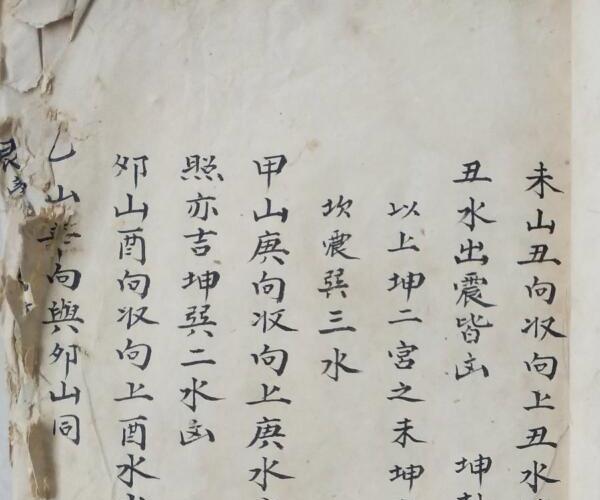 未山丑向收向上丑水
丑水出震皆凶 坤
以上坤二宮之未坤
坎震巽三水
甲山庚向收向上庚水
照亦吉坤巽二水凶
卯山酉向收向上酉水
乙山 向與卯山同